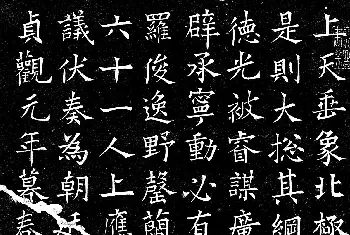 上天垂象北極
是則大揔其綱
徳光被睿謀廣
辟承寧動必有
羅俊逸野罄蘭
六十一人上應
議伏奏為朝
貞觀元年暮春